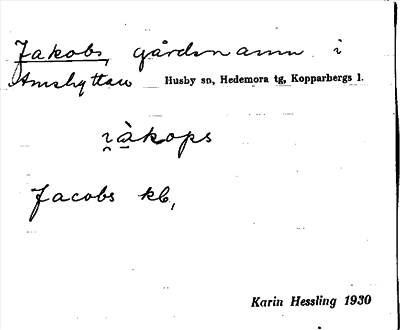 Jakobs, gårdsnamn i
Amshyttan Husby sn, Hedemora tg, Kopparbergs l.
i̯àkops
Jacobs kb,
Karin Hessling 1930